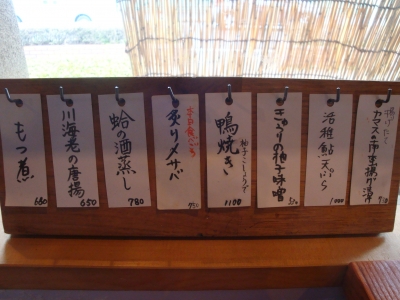 揚げたて
カマスの
710
活稚鮎天ぷら
1000
きゅうりの柚子味噌
鴨焼き
柚子こしょうで
1100
炙り〆サバ
750
蛤の酒蒸し
780
川海老の唐揚
650
もつ煮
680